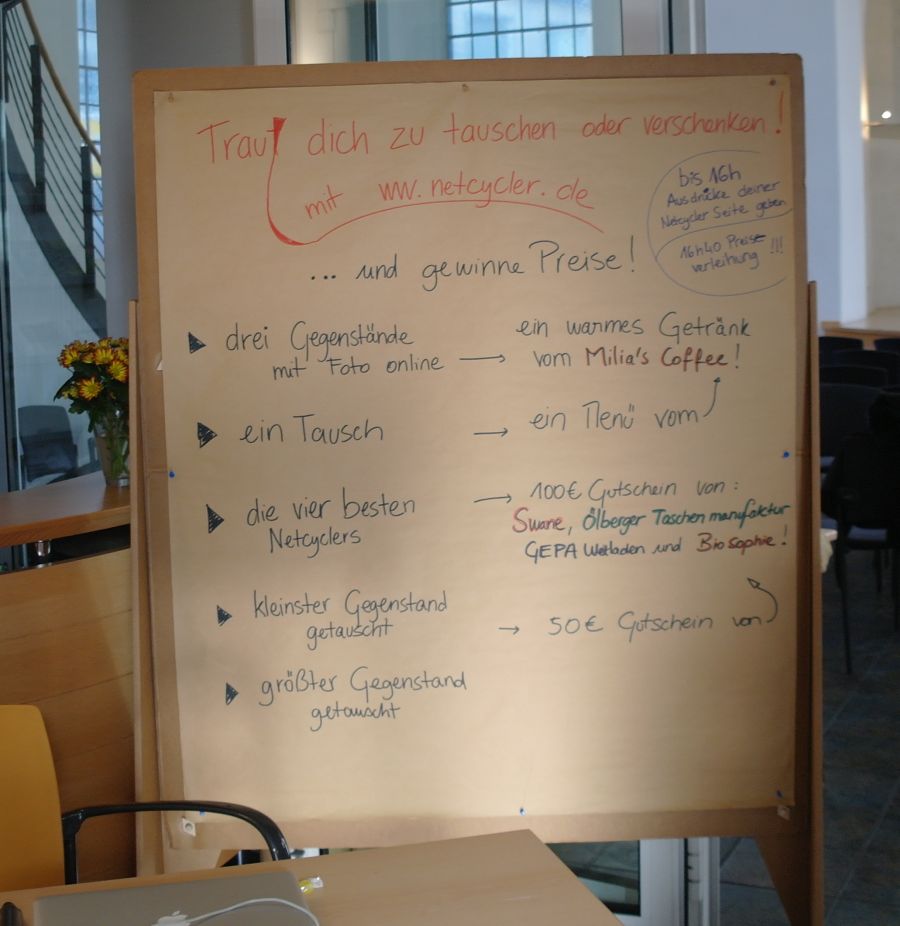 Trau dich zu tauschen oder verschenken!
mit ww.netcycler.de
bis 16h
Ausdrücke deiner
Netcycler Seite geben
16h40 Preis-
verleihung !!!
... und gewinne Preise!
drei Gegenstände
mit Foto online → ein warmes Getränk
vom Milia's Coffee!
ein Tausch → ein Menü vom
die vier besten
Netcyclers → 100€ Gutschein von:
Swane, Ölberger Taschenmanufaktur
GEPA Weltladen und Biosophie!
kleinster Gegenstand
getauscht → 50€ Gutschein von
größter Gegenstand
getauscht